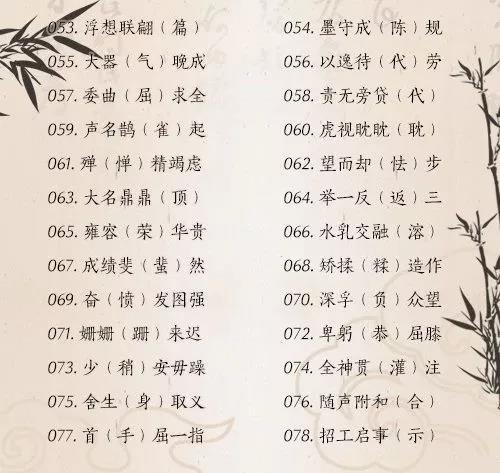 053. 浮想联翩（篇） 054. 墨守成（陈）规
055. 大器（气）晚成 056. 以逸待（代）劳
057. 委曲（屈）求全 058. 责无旁贷（代）
059. 声名鹊（雀）起 060. 虎视眈眈（耽）
061. 殚（惮）精竭虑 062. 望而却（怯）步
063. 大名鼎鼎（顶） 064. 举一反（返）三
065. 雍容（荣）华贵 066. 水乳交融（溶）
067. 成绩斐（蜚）然 068. 矫揉（糅）造作
069. 奋（愤）发图强 070. 深孚（负）众望
071. 姗姗（跚）来迟 072. 卑躬（恭）屈膝
073. 少（稍）安毋躁 074. 全神贯（灌）注
075. 舍生（身）取义 076. 随声附和（合）
077. 首（手）屈一指 078. 招工启事（示）